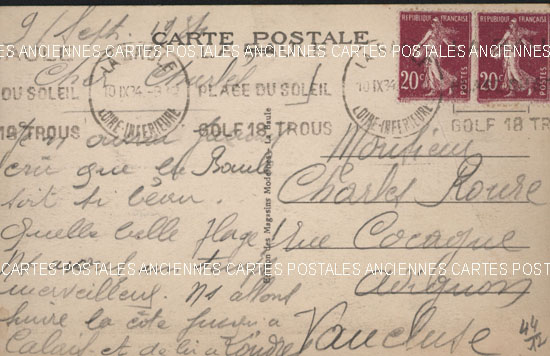 9 Sept. 1934
CARTE POSTALE
RÉPUBLIQUE FRANÇAISE
20c
POSTES
RÉPUBLIQUE FRANÇAISE
20c
POSTES
10 IX 34
LOIRE-INFÉRIEURE
10 IX 34
LOIRE-INFÉRIEURE
DU SOLEIL
PLAGE DU SOLEIL
18 TROUS
GOLF 18 TROUS
GOLF 18 TROUS
ANCIENNES CARTES POSTALES ANCIENNES CARTES POSTALES ANCIENNES CARTES POSTALES
Cher
cru que la Baule
soit si beau.
Quelle belle plage!
merveilleux. Ns allons
suivre la côte jusqu'à
Calais et de là à Londres
des Magasins Modernes, La Baule
Monsieur
Charles Roure
Rue Cocagne
Avignon
Vaucluse
44
CARTES POSTALES ANCIENNES CARTES POSTALES ANCIENNES CARTES POSTALES ANCIENNES